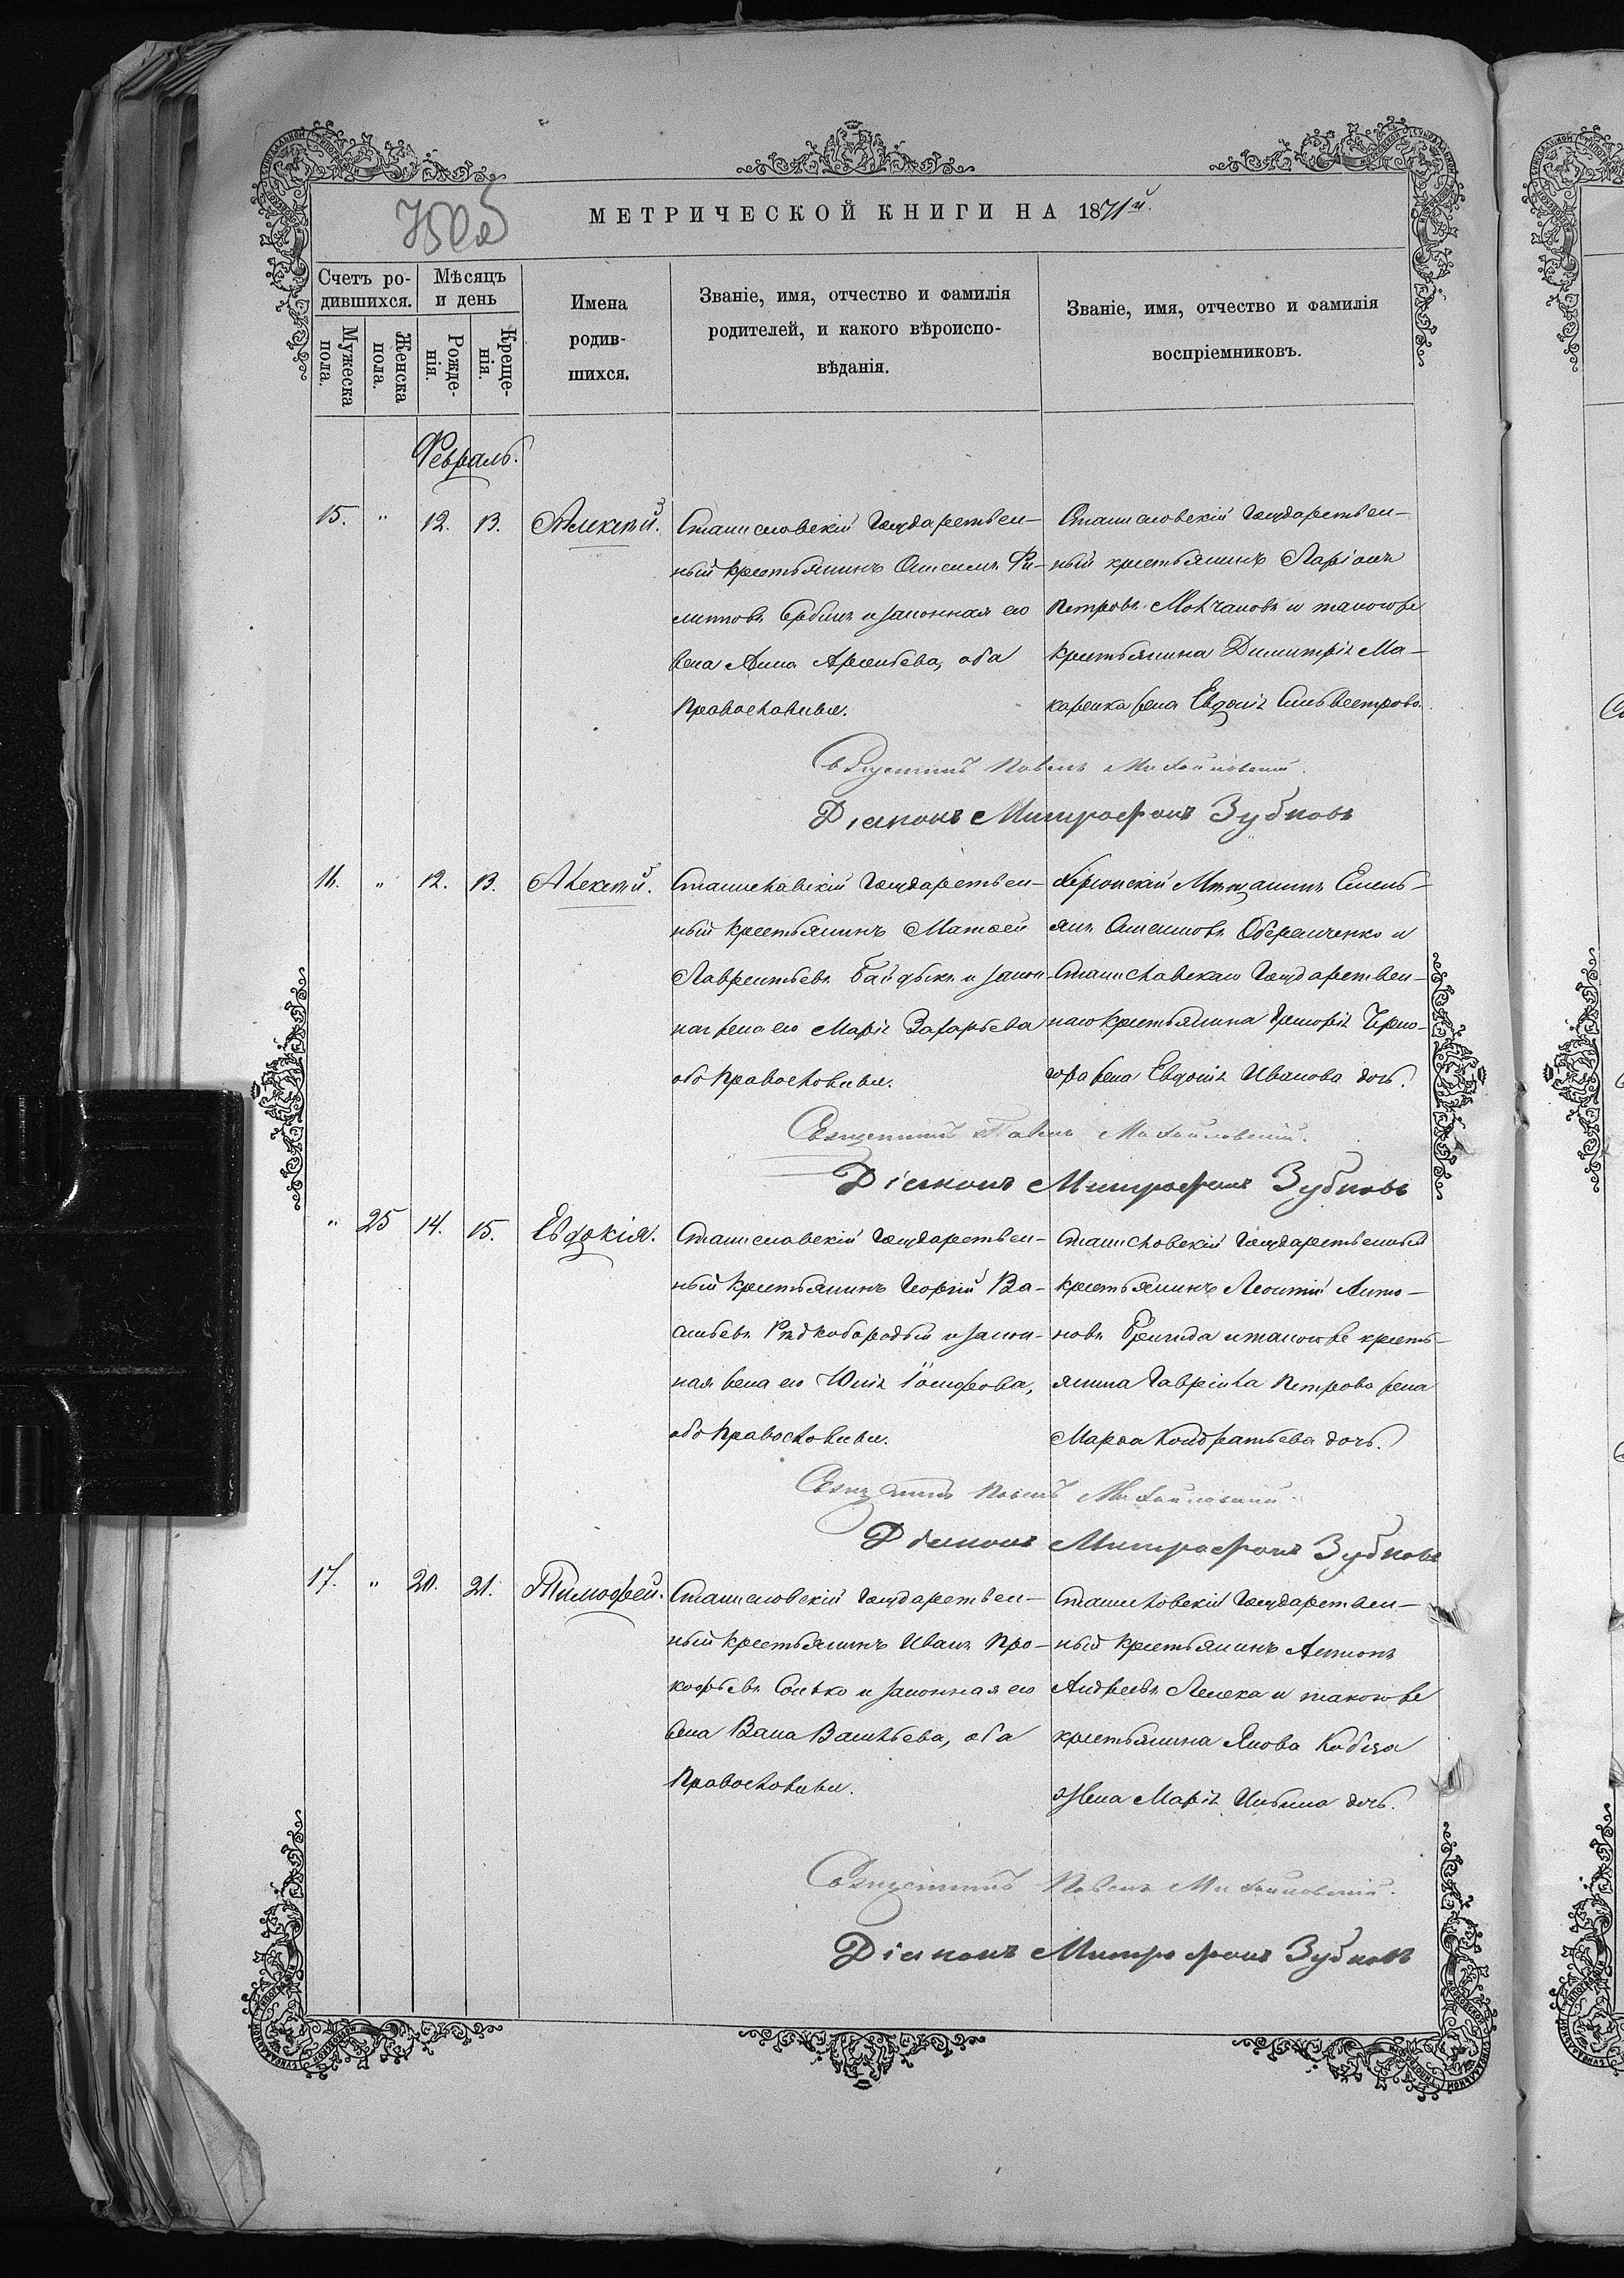 МЕТРИЧЕСКОЙ КНИГИ НА 1871й.
Счетъ ро-
дившихся.
Мужеска
пола.
Женска
пола.
Мѣсяцъ
и день
Рожде-
нія.
Креще-
нія.
Имена
родив-
шихся.
Званіе, имя, отчество и фамилія
родителей, и какого вѣроиспо-
вѣданія.
Званіе, имя, отчество и фамилія
воспріемниковъ.
Февраль.
15. " 12. 13. Алексѣй.
Станиславскій Государствен-
ный крестьянинъ Онисимъ Фи-
липповъ и законная его
жена Анна Арсеньева, оба
Православные.
Станиславскій Государствен-
ный крестьянинъ Ларіонъ
Петровъ Молчановъ и такого же
крестьянина Димитрія Ма-
каренка жена Евдокія Сильвестрова.
Священникъ Павелъ Михайловскій.
Діаконъ Митрофанъ Зубковъ
16. " 12. 13. Алексѣй.
Станиславскій Государствен-
ный крестьянинъ Матѳей
Лаврентьевъ Байдыкъ и закон-
ная жена его Марія Захарьева
оба Православные.
Херсонскій Мѣщанинъ Емель-
янъ Онисимовъ и
Станиславскаго Государствен-
наго крестьянина Григорія Черно-
гора жена Евдокія Иванова дочь.
Священникъ Павелъ Михайловскій.
Діаконъ Митрофанъ Зубковъ
" 25 14. 15. Евдокія.
Станиславскій Государствен-
ный крестьянинъ Георгій Ва-
сильевъ Рѣдкобородый и закон-
ная жена его Юлія Іосифова,
оба Православные.
Станиславскій Государственный
крестьянинъ Леонтій Анто-
новъ и такого же кресть-
янина Гавріила Петрова жена
Марѳа Кондратьева дочь.
Священникъ Павелъ Михайловскій.
Діаконъ Митрофанъ Зубковъ
17. " 20. 21. Тимофей.
Станиславскій Государствен-
ный крестьянинъ Иванъ Про-
кофьевъ и законная его
жена Васильева, оба
Православные.
Станиславскій Государствен-
ный крестьянинъ Антонъ
Андреевъ Лелека и такого же
крестьянина Якова Кобца
жена Марія Ильина дочь.
Священникъ Павелъ Михайловскій.
Діаконъ Митрофанъ Зубковъ